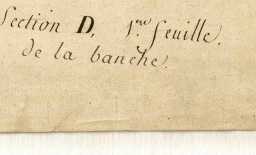 Section D, 1.ère feuille.
de la banche.